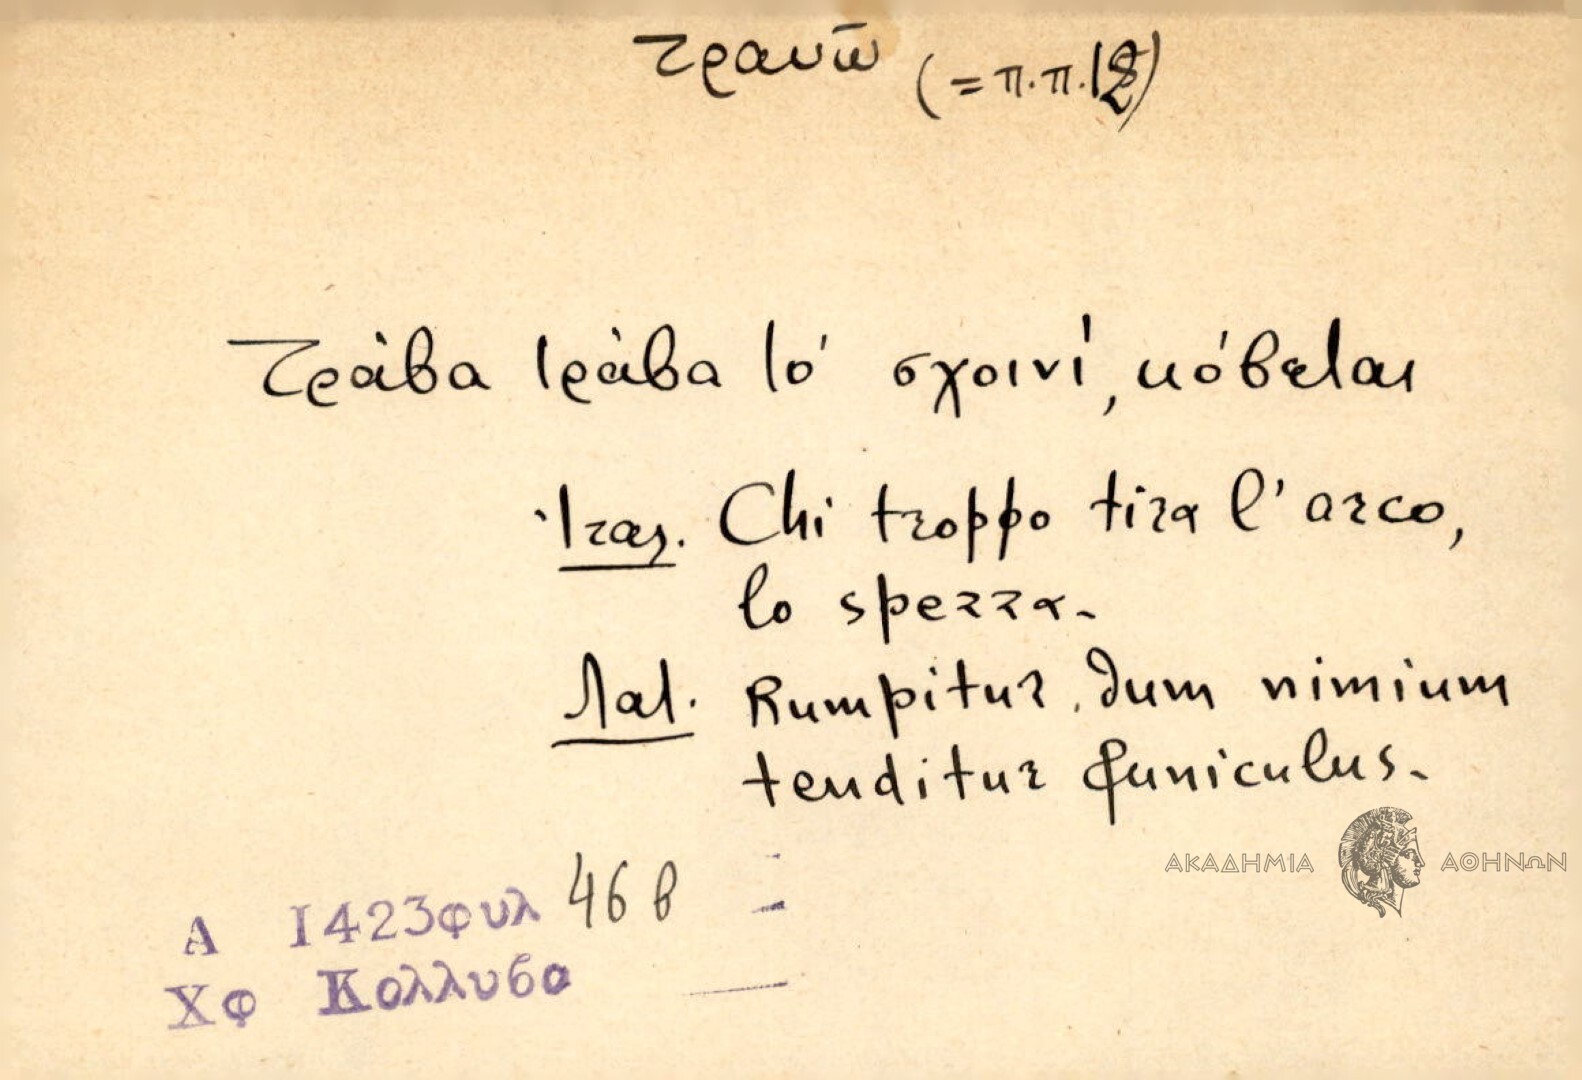 τραυῶ (=π.π.12)
Τράβα τράβα το' σχοινί, κόβεται
Ἰταλ. Chi troppo tira l'arco,
lo spezza.
Λατ. Rumpitur, dum nimium
tenditur funiculus.
ΑΚΑΔΗΜΙΑ ΑΘΗΝΩΝ
Α 1423φυλ 46 β
Χφ Κολλυβα